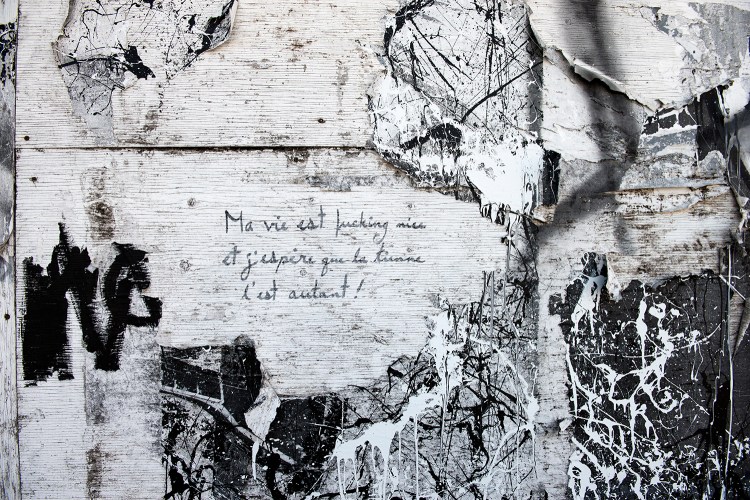 Ma vie est fucking nice
et j'espère que la tienne
l'est autant!